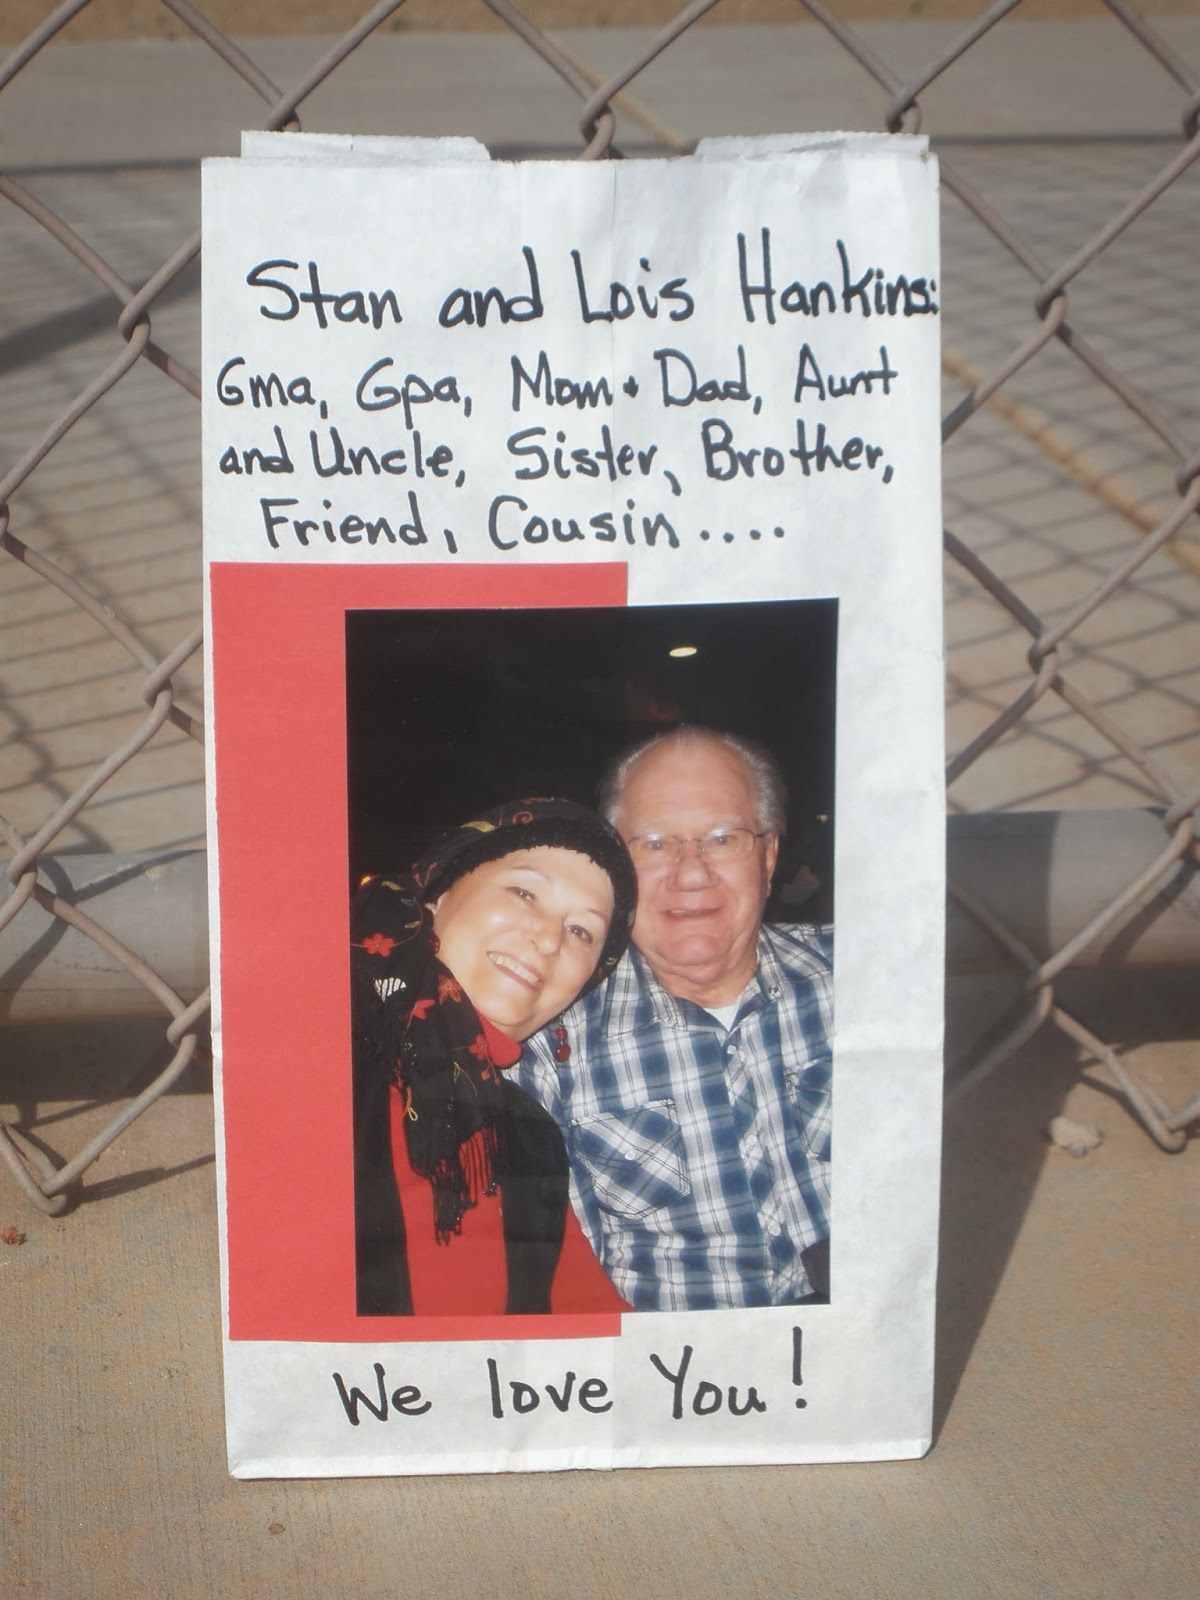 Stan and Lois Hankins:
Gma, Gpa, Mom + Dad, Aunt
and Uncle, Sister, Brother,
Friend, Cousin....
We love You!